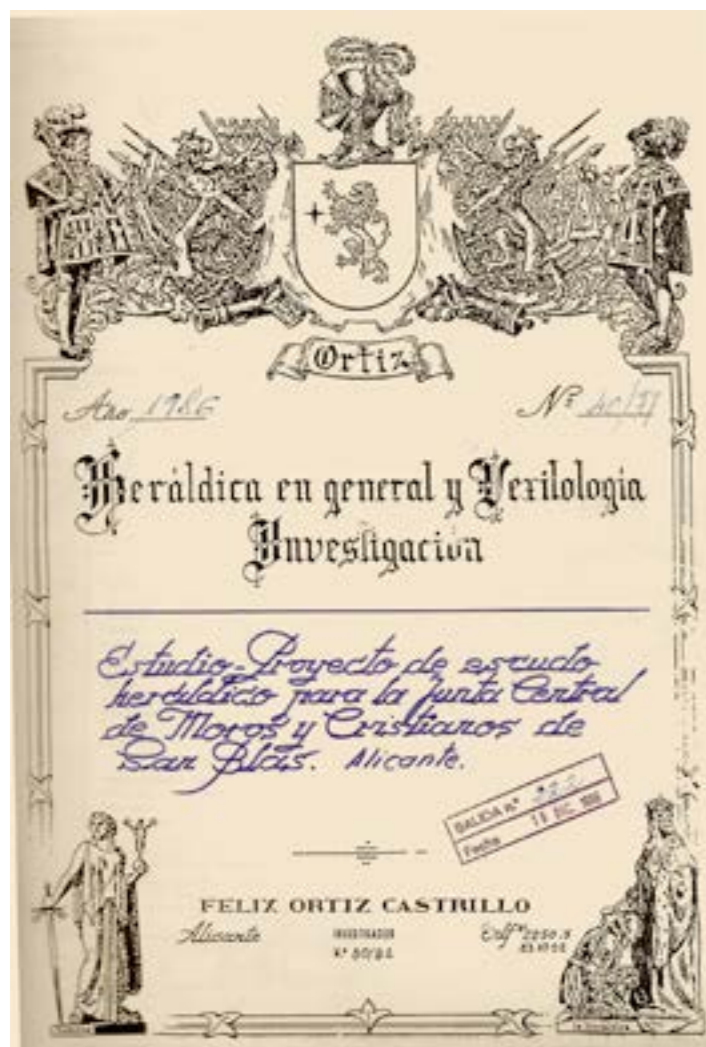 Ortiz
Año 1986
Nº
Heráldica en general y Vexilología
Investigación
Estudio-Proyecto de escudo
heráldico para la Junta Central
de Moros y Cristianos de
San Blas. Alicante.
SALIDA n.º
Fecha DIC.
FELIX ORTIZ CASTRILLO
Alicante
INVESTIGADOR